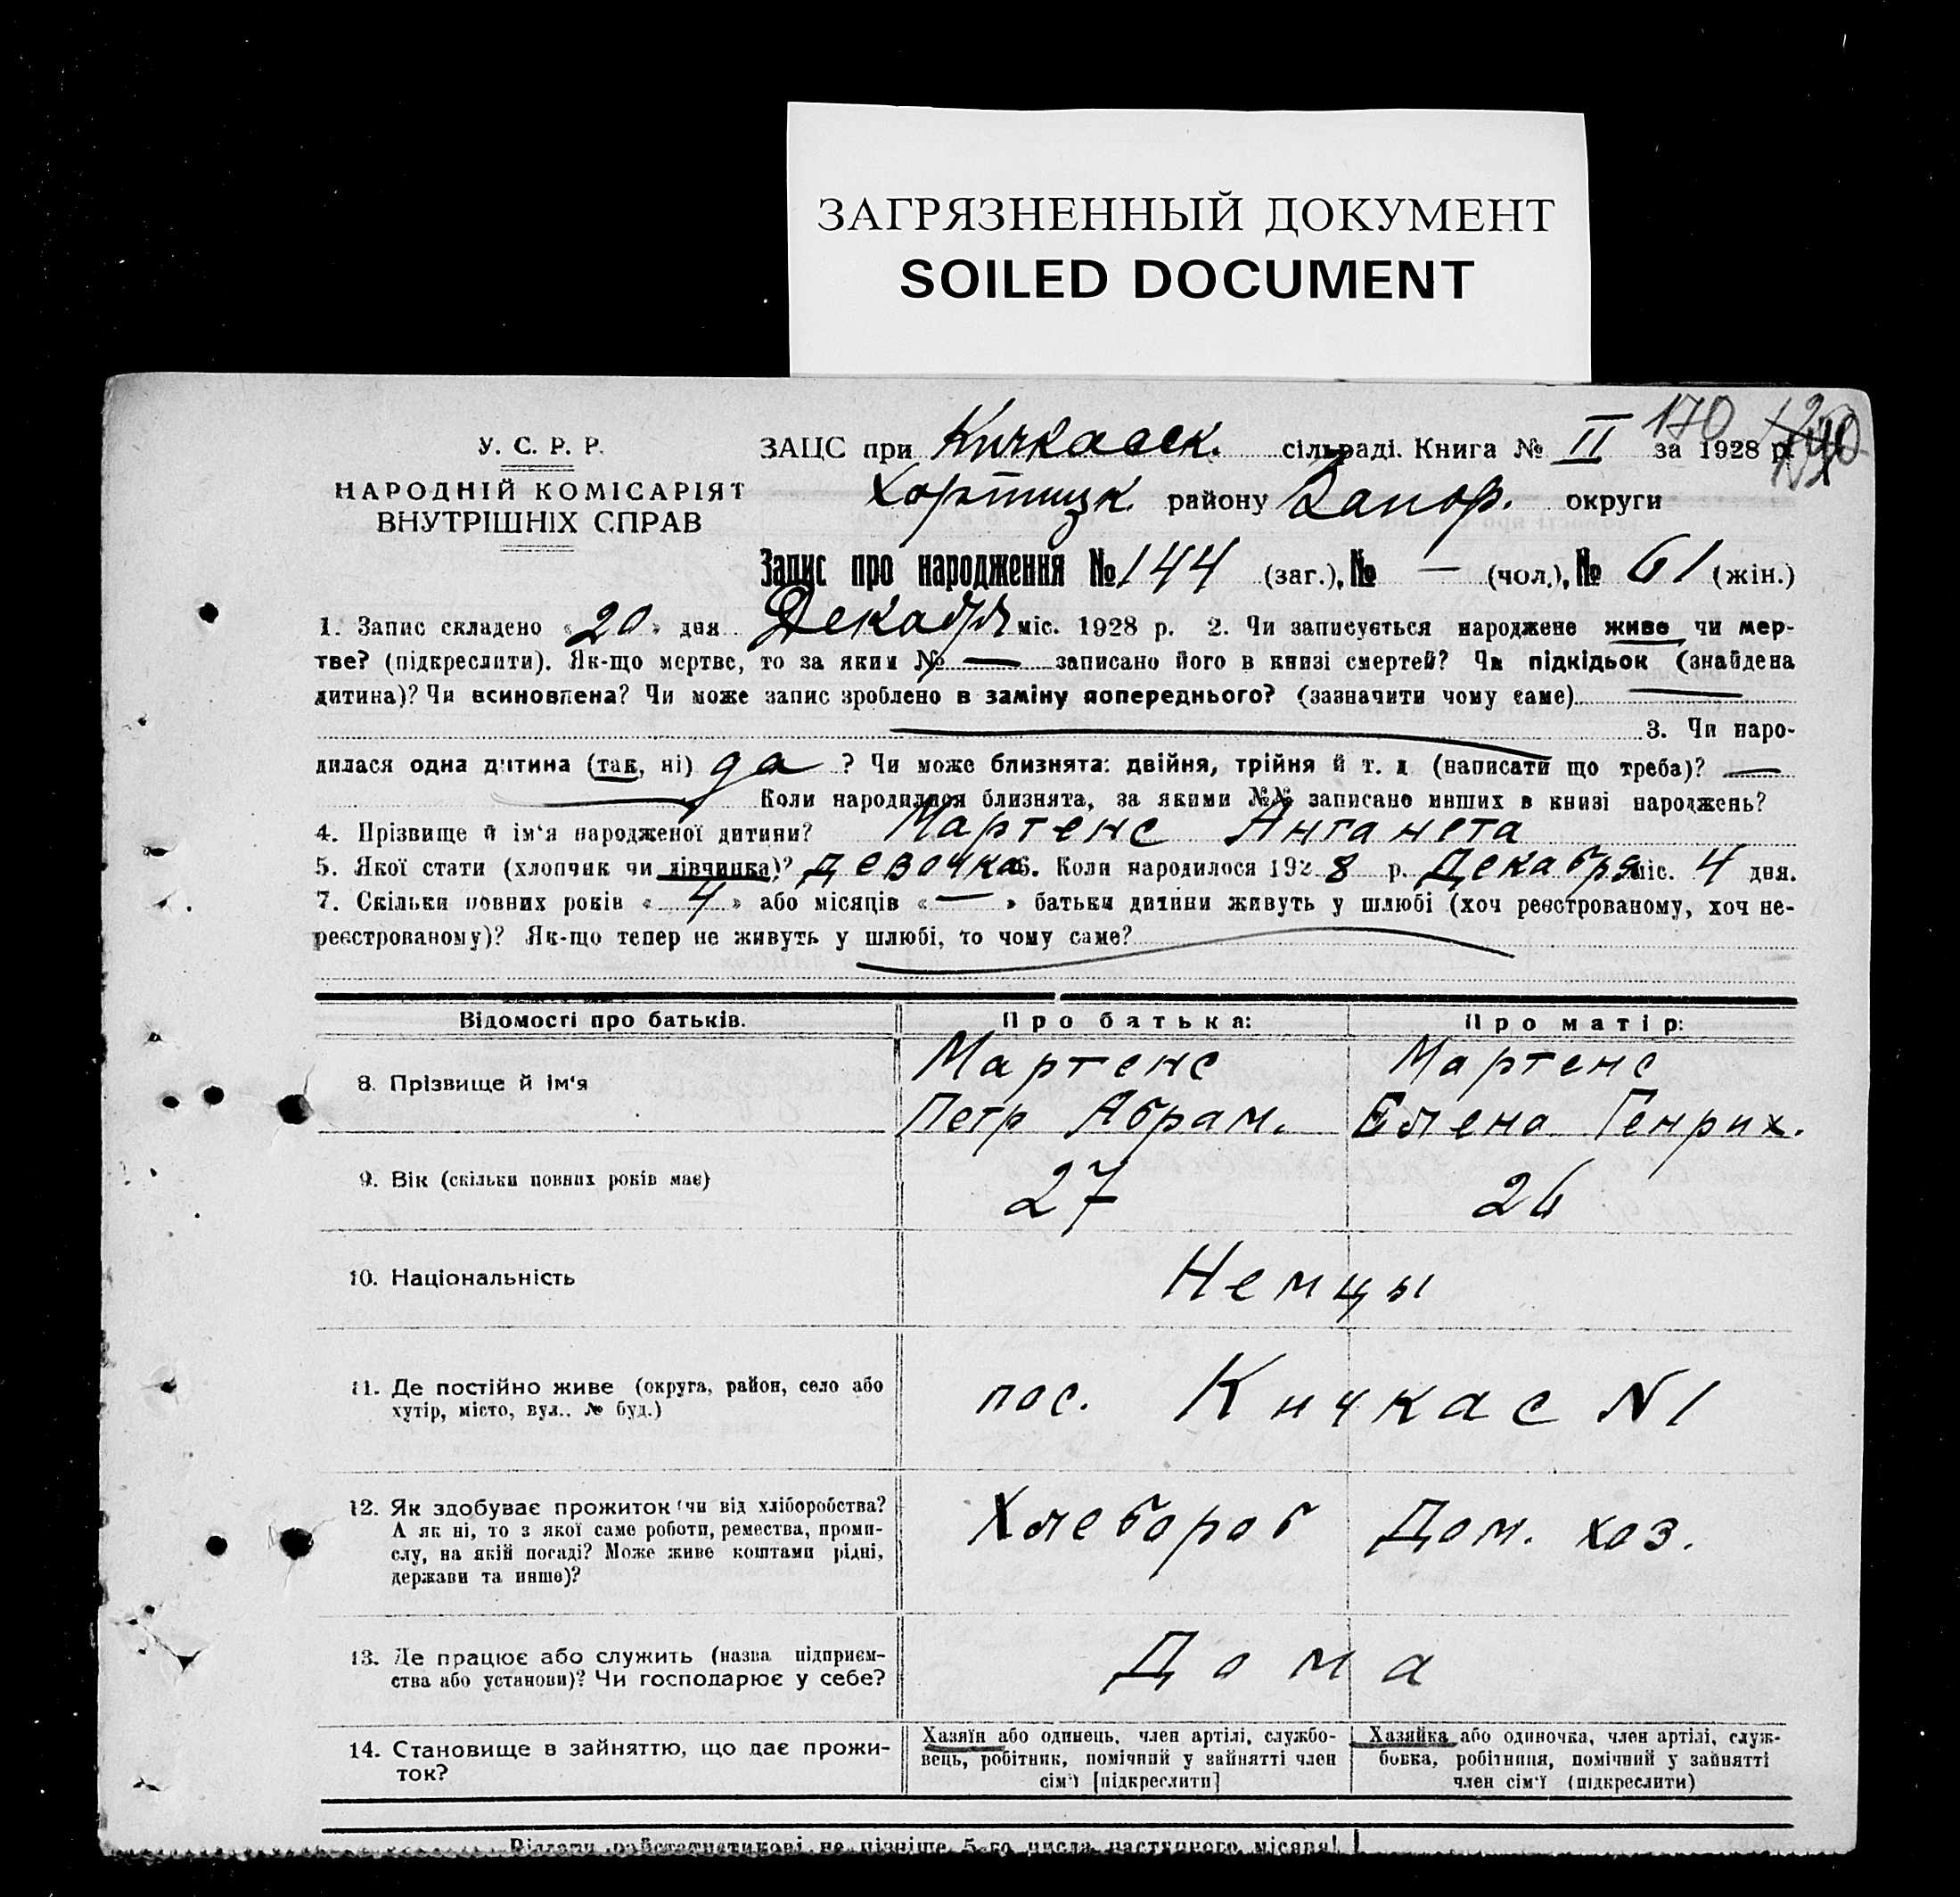 ЗАГРЯЗНЕННЫЙ ДОКУМЕНТ
SOILED DOCUMENT
170
У. С. Р. Р.
НАРОДНІЙ КОМІСАРІЯТ
ВНУТРІШНІХ СПРАВ
ЗАЦС при Кичкасск. сільраді. Книга № II за 1928 р.
Хортицк. району Запор. округи
Запис про народження № 144 (заг.), № — (чол.), № 61 (жін.)
1. Запис складено «20» дня Декабря міс. 1928 р. 2. Чи записується народжене живе чи мер-
тве? (підкреслити). Як-що мертве, то за яким № — записано його в книзі смертей? Чи підкідьок (знайдена
дитина)? Чи всиновлена? Чи може запис зроблено в заміну попереднього? (зазначити чому саме) —
3. Чи наро-
дилася одна дитина (так, ні) да ? Чи може близнята: двійня, трійня й т. д. (написати що треба)? —
Коли народилися близнята, за якими №№ записано инших в книзі народжень?
4. Прізвище й ім‘я народженої дитини? Мартенс Анганета
5. Якої стати (хлопчик чи дівчинка)? девочка 6. Коли народилося 1928 р. Декабря міс. 4 дня.
7. Скільки повних років «4» або місяців «—» батьки дитини живуть у шлюбі (хоч реєстрованому, хоч не-
реєстрованому)? Як-що тепер не живуть у шлюбі, то чому саме?
Відомості про батьків. Про батька: Про матір:
8. Прізвище й ім‘я Мартенс Мартенс
Петр Абрам. Елена Генрих.
9. Вік (скільки повних років має) 27 26
10. Національність Немцы
11. Де постійно живе (округа, район, село або
хутір, місто, вул.. № буд.) пос. Кичкас N 1
12. Як здобуває прожиток (чи від хліборобства?
А як ні, то з якої саме роботи, ремества, проми-
слу, на якій посаді? Може живе коштами рідні,
держави та инше)? Хлебороб Дом. хоз.
13. Де працює або служить (назва підприєм-
ства або установи)? Чи господарює у себе? Дома
14. Становище в зайняттю, що дає прожи-
ток?
Хазяїн або одинець, член артілі, службо-
вець, робітник, помічний у зайнятті член
сім‘ї [підкреслити]
Хазяйка або одиночка, член артілі, служ-
бовка, робітниця, помічний у зайнятті
член сім‘ї (підкреслити)
Віддати райстатистикові не пізніше 5-го числа наступного місяця!